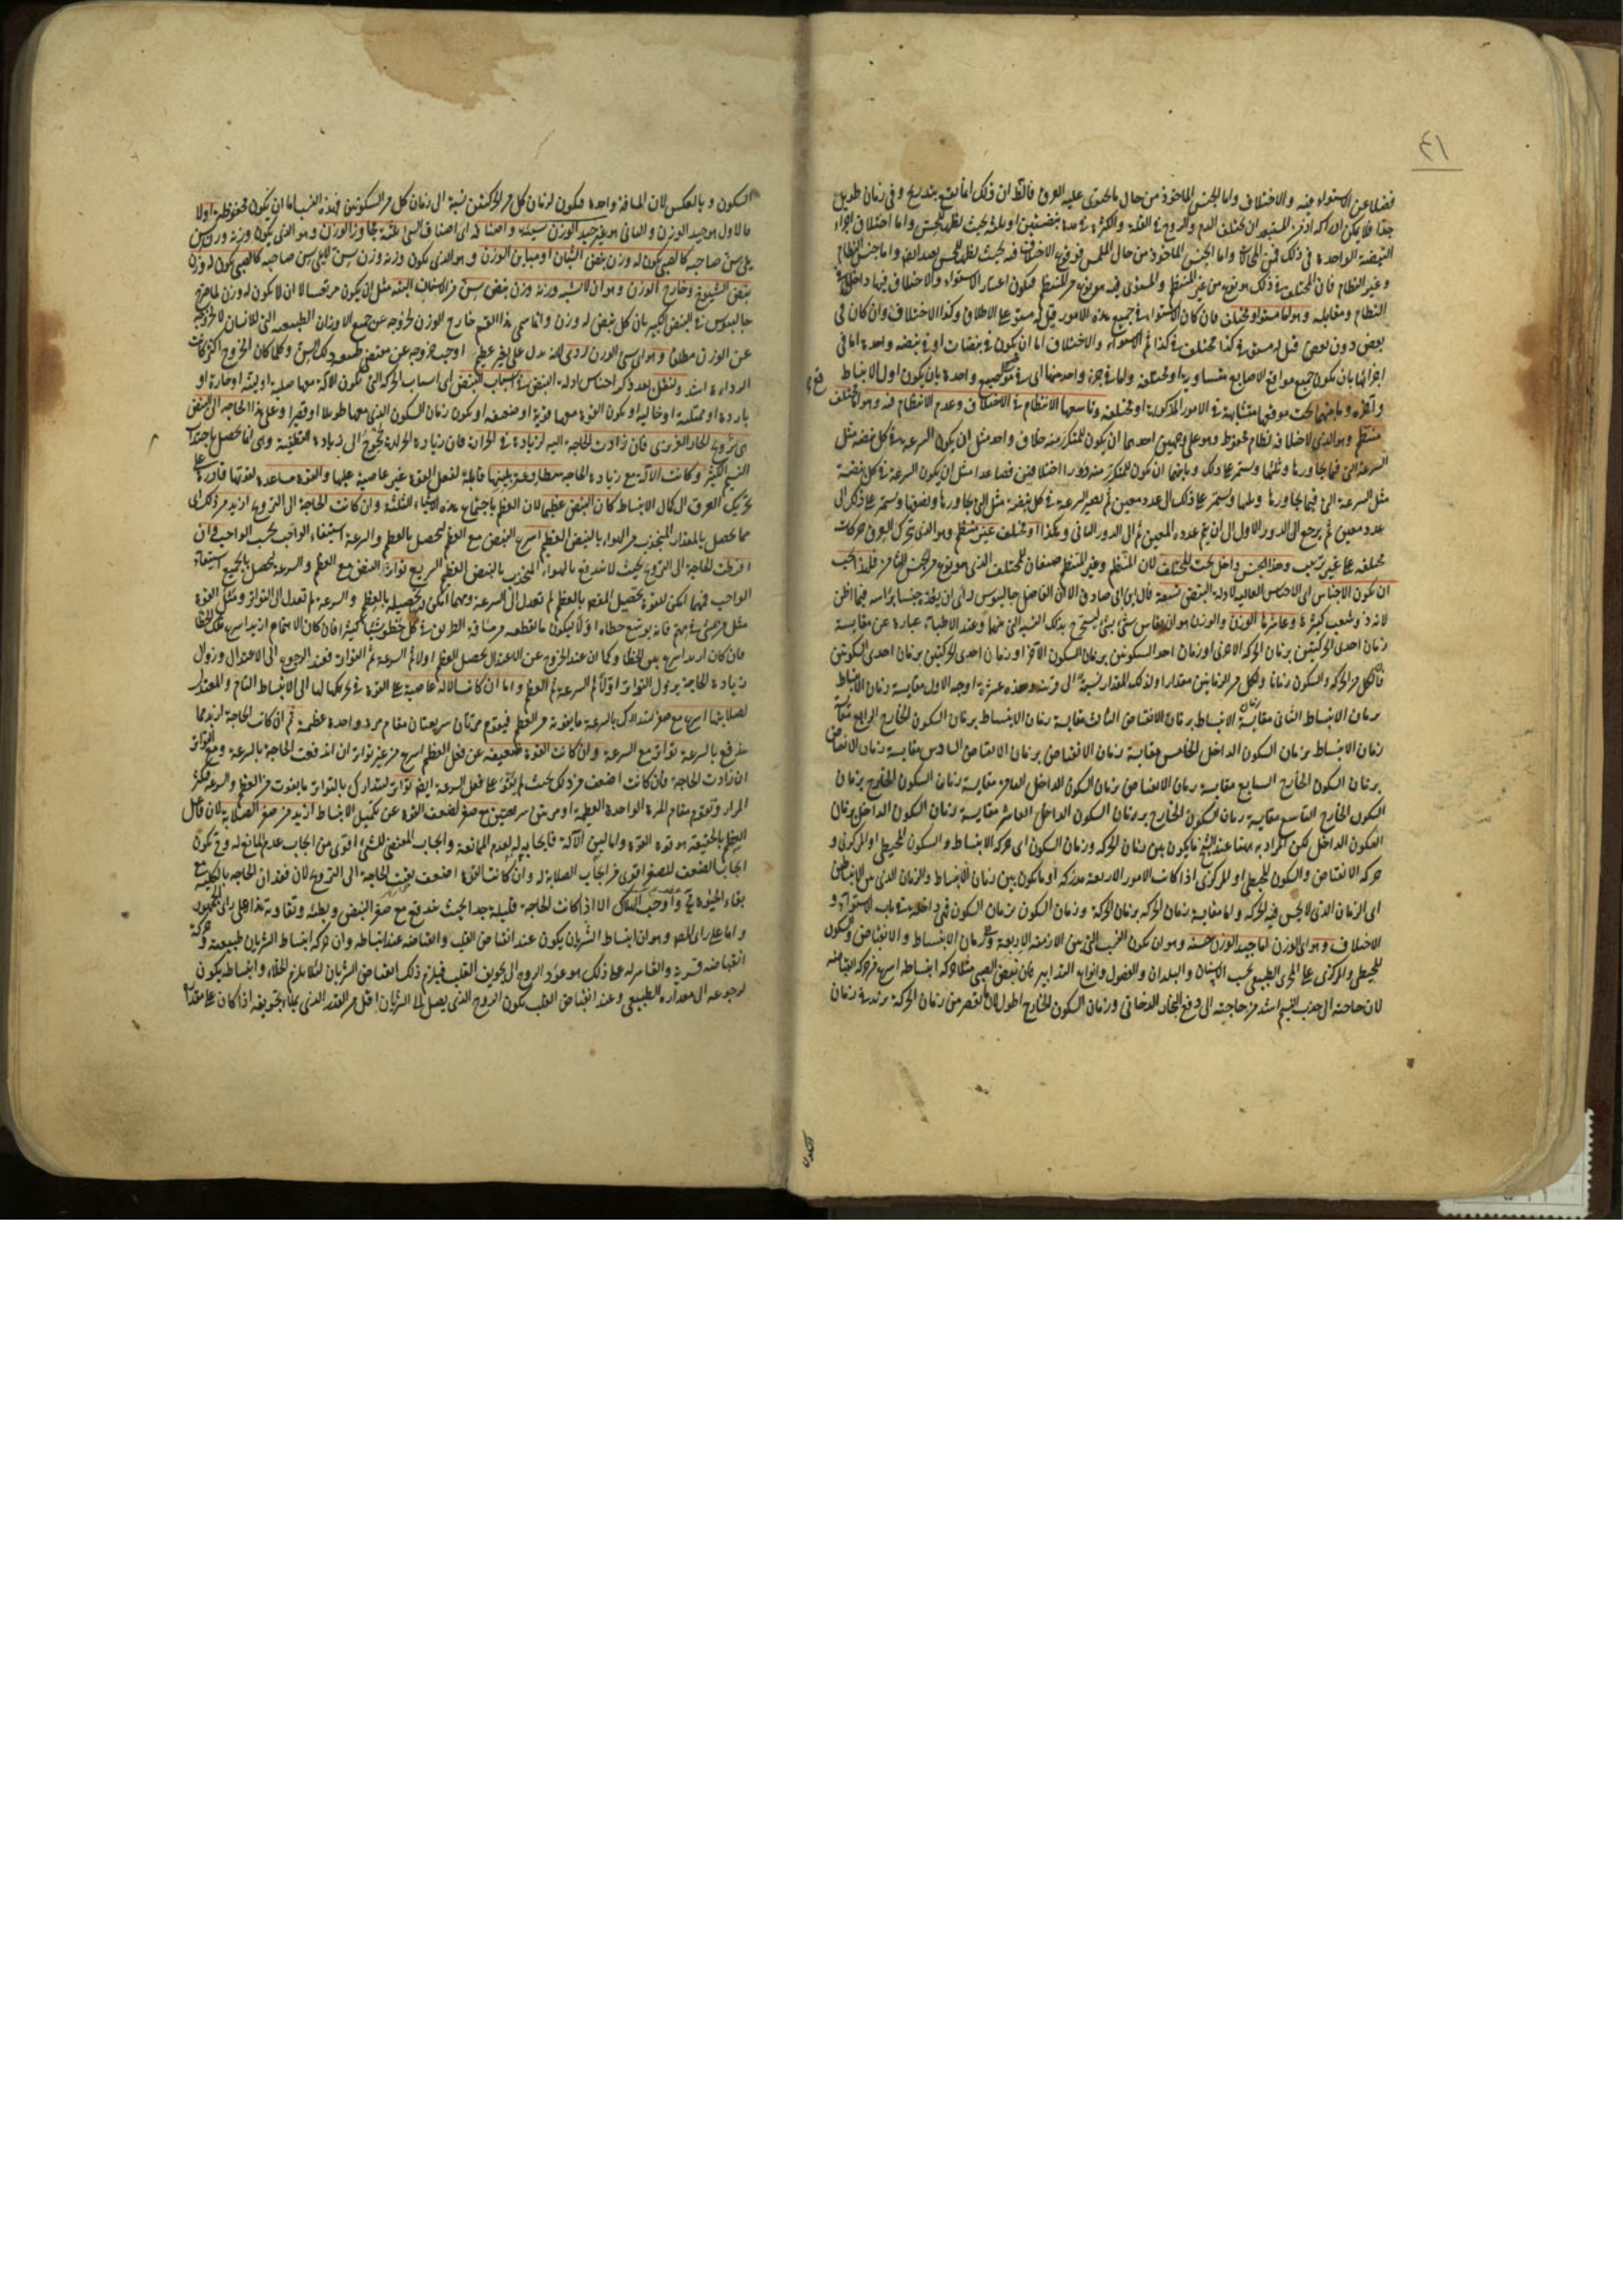 ٤١
فضلا عن الاستواء فيه والاختلاف واما الجنس الماخوذ من حال ما يحتوى عليه العرق فالظ ان ذلك انما يتغير بتدريج و فى زمان طويل
جدا فلا يمكن ادراكه اذ من المستبعد ان يختلف الدم والروح فى القلة والكثرة فى مدة نبضتين او ثلثة بحيث يظهر للحس واما اختلاف اجزاء
النبضة الواحدة فى ذلك فمن المحال واما الجنس الماخوذ من حال الملمس فوقوع الاختلاف فيه بحيث يظهر للحس بعيد ايضا واما جنس النظام
وغير النظام فان المختلف فى ذلك هو نوع من غير المنتظم والمستوى فيه هو نوع من المنتظم فيكون اعتبار الاستواء والاختلاف فيها داخلا فى
النظام ومقابله وهو اما مستو او مختلف فان كان الاستواء فى جميع هذه الامور قيل له مستو على الاطلاق وكذا الاختلاف وان كان فى
بعض دون بعض قيل له مستو فى كذا مختلف فى كذا ثم الاستواء والاختلاف اما ان يكون فى نبضات او فى نبضة واحدة اما فى
اجزائها بان يكون جميع مواقع الاصابع متساوية او مختلفة واما فى جزء واحد منها اى فى موقع اصبع واحدة بان يكون اول الانبساط
وآخره وما بينهما تحت موقعها متشابهة فى الامور المذكورة او مختلفة وتاسعها الانتظام فى الاختلاف وعدم الانتظام فيه وهو اما مختلف
منتظم وهو الذى لاختلافه نظام محفوظ وهو على وجهين احدهما ان يكون للمتكرر منه خلاف واحد مثل ان يكون السرعة فى كل نبضة مثل
السرعة التى فيما يجاورها ومثلها ويستمر على ذلك وثانيهما ان يكون للمتكرر منه دورا اختلافين فصاعدا مثل ان يكون السرعة فى كل نبضة
مثل السرعة التى فيما يجاورها ومثلها ويستمر على ذلك الى عدد معين ثم يصير السرعة فى كل نبضة مثل التى تجاورها ونصفها ويستمر على ذلك الى
عدد معين ثم يرجع الى الدور الاول الى ان يتم عدده المعين ثم الى الدور الثانى وهكذا او مختلف غير منتظم وهو الذى يتحرك العرق حركات
مختلفة على غير ترتيب وهذا الجنس داخل تحت المختلف لان المنتظم وغير المنتظم صنفان للمختلف الذى هو نوع من الجنس الثامن فلهذا يجب
ان يكون الاجناس اى الاجناس العالية لادلة النبض تسعة قال ابن ابى صادق الا ان الفاضل جالينوس راى ان يعده جنسا براسه فيما اظن
لانه ذو شعب كثيرة وعاشرها الوزن والوزن هو ان يقاس شئ بشئ ليستخرج بذلك النسبة التى بينهما وعند الاطباء عبارة عن مقايسة
زمان احدى الحركتين بزمان الحركة الاخرى او زمان احد السكونين بزمان السكون الاخر او زمان احدى الحركتين بزمان احدى السكونين
فان لكل من الحركة والسكون زمانا ولكل من الزمانين مقدارا ولذلك المقدار نسبة الى قرينه وهذه عشرة اوجه الاول مقايسة زمان الانبساط
بزمان الانبساط الثانى مقايسة زمان الانبساط بزمان الانقباض الثالث مقايسة زمان الانبساط بزمان السكون الخارج الرابع مقايسة
زمان الانبساط بزمان السكون الداخل الخامس مقايسة زمان الانقباض بزمان الانقباض السادس مقايسة زمان الانقباض
بزمان السكون الخارج السابع مقايسة زمان الانقباض بزمان السكون الداخل الثامن مقايسة زمان السكون الخارج بزمان
السكون الخارج التاسع مقايسة زمان السكون الخارج بزمان السكون الداخل العاشر مقايسة زمان السكون الداخل بزمان
السكون الداخل لكن المراد به ههنا عند الشيخ ما يكون بين زمان الحركة وزمان السكون اى حركة الانبساط والسكون المحيطى او المركزى و
حركة الانقباض والسكون المحيطى او المركزى اذا كانت الامور الاربعة مدركة او ما يكون بين زمان الانبساط والزمان الذى بين الانبساطين
اى الزمان الذى لا يحس فيه الحركة واما مقايسة زمان الحركة بزمان الحركة وزمان السكون بزمان السكون فهى داخلة فى باب الاستواء و
الاختلاف وهو اى الوزن اما جيد الوزن حسنه وهو ان يكون النسب التى بين الازمنة الاربعة وهى زمان الانبساط والانقباض والسكون
المحيطى والمركزى على المجرى الطبيعى بحسب الاسنان والبلدان والفصول وانواع التدابير فان نبض الصبى مثلا حركة انبساطه اسرع من حركة انقباضه
لان حاجته الى جذب النسيم اشد من حاجته الى دفع البخار الدخانى وزمان السكون الخارج اطول
السكون
السكون و بالعكس لان المسافة واحدة فيكون لزمان كل من الحركتين نسبة الى زمان كل من السكونين فهذه النسب اما ان يكون محفوظة اولا
فالاول هو جيد الوزن والثانى هو غير جيد الوزن سيئه واصنافه اى اصناف السئ ثلثة مجاوز الوزن وهو الذى يكون وزنه وزن سن
يلى سن صاحبه كالصبى يكون له وزن نبض الشبان او مباين الوزن و هو الذى يكون وزنه وزن سن لا يلى سن صاحبه كالصبى يكون له وزن
نبض الشيوخ وخارج الوزن وهو ان لا يشبه وزنه وزن نبض سن من الاسنان البتة
جالينوس فى النبض الكبير بان كل نبض له وزن وانما سمى هذا القسم خارج الوزن لخروجه عن جميع الاوزان الطبيعية التى للانسان
عن الوزن مطلقا وهو اى سئ الوزن ردى لانه يدل على تغير عظيم اوجب خروجه عن مقتضى طبيعة ذلك السن وكلما كان الخروج اكثر كانت
الرداءة اشد ولنقل بعد ذكر اجناس ادلة النبض فى اسباب النبض اى اسباب الحركة التى يكون الآلة معها صلبة او لينة او حارة او
باردة او ممتلئة او خالية او يكون القوة معها قوية او ضعيفة او يكون زمان السكون الذى معها طويلا او قصيرا وعلى هذا الحاجة الى النبض
هى ترويح الحار الغريزى فان زادت الحاجة اليه لزيادة فى الحرارة
النسيم الكثير وكانت الآلة مع زيادة الحاجة مطاوعة بلينها قابلة لفعل القوة غير عاصية عليها والقوة مساعدة لقوتها قادرة على
تحريك العرق الى كمال الانبساط كان النبض عظيما لان العظم باجتماع هذه الاشياء الثلثة وان كانت الحاجة الى الترويح ازيد من ذلك اى
مما يحصل بالمقدار المنجذب من الهواء بالنبض العظيم اسرع النبض مع العظم ليحصل بالعظم والسرعة استيفاء الواجب بحسب الواجب وان
افرطت الحاجة الى الترويح بحيث لا يندفع بالهواء المنجذب بالنبض العظيم السريع تواتر النبض مع العظم والسرعة ليحصل بالجميع استيفاء
الواجب فمهما امكن للقوة تحصيل الغرض بالعظم لم تعدل الى السرعة ومهما امكن تحصيله بالعظم والسرعة لم تعدل الى التواتر ومثل القوة
فان كان ازيد اسرع مع الخطا وكما ان عند الخروج عن الاعتدال يحصل العظم اولا ثم السرعة ثم التواتر فعند الرجوع الى الاعتدال وزوال
زيادة الحاجة يزول التواتر اولا ثم السرعة ثم العظم واما ان كانت الآلة عاصية على القوة فى تحريكها لها الى الانبساط التام والمقتدر
لصلابتها اسرع مع صغر لتتدارك بالسرعة ما يفوته من العظم فيقوم مرتان سريعتان مقام مرة واحدة عظيمة ثم ان كانت الحاجة ازيد مما
يندفع بالسرعة تواتر مع السرعة وان كانت القوة ضعيفة عن فعل العظم اسرع من غير تواتر ان اندفعت الحاجة بالسرعة
ان زادت الحاجة فان كانت اضعف من ذلك بحيث لم تقو على فعل السرعة ايضا تواتر ليتدارك بالتواتر ما يفوت من العظم والسرعة
المرار وتقوم مقام المرة الواحدة العظيمة او مرتين سريعتين مع صغر لضعف القوة عن تكميل الانبساط ازيد من صغر الصلابة لان فاعل
العظم بالحقيقة هو قوة القوة واما لين الآلة فايجابه له لعدم الممانعة وايجاب المقتضى للشئ اقوى من ايجاب عدم المانع له وح يكون
ايجاب الضعف للصغر اقوى من ايجاب الصلابة له وان كانت القوة اضعف بقيت الحاجة الى الترويح لان فقدان الحاجة بالكلية مع
بقاء الحيوة مح واوجب الهلاك الا اذا كانت الحاجة قليلة جدا بحيث يندفع مع صغر النبض وبطئه وتفاوته هذا على راى الجمهور
واما على راى المص وهو ان انبساط الشريان يكون عند انقباض القلب وانقباضه عند انبساطه وان حركة انبساط الشريان طبيعية وحركة
انقباضه قسرية والقاسر له على ذلك هو عود الروح الى تجويف القلب فيلزم ذلك انقباض الشريان لئلا يلزم الخلاء وانبساطه يكون
لرجوعه الى مقداره الطبيعى وعند انقباض القلب يكون الروح الذى يصل الى الشريان اقل من القدر الذى يملأ تجويفه اذا كان على مقداره